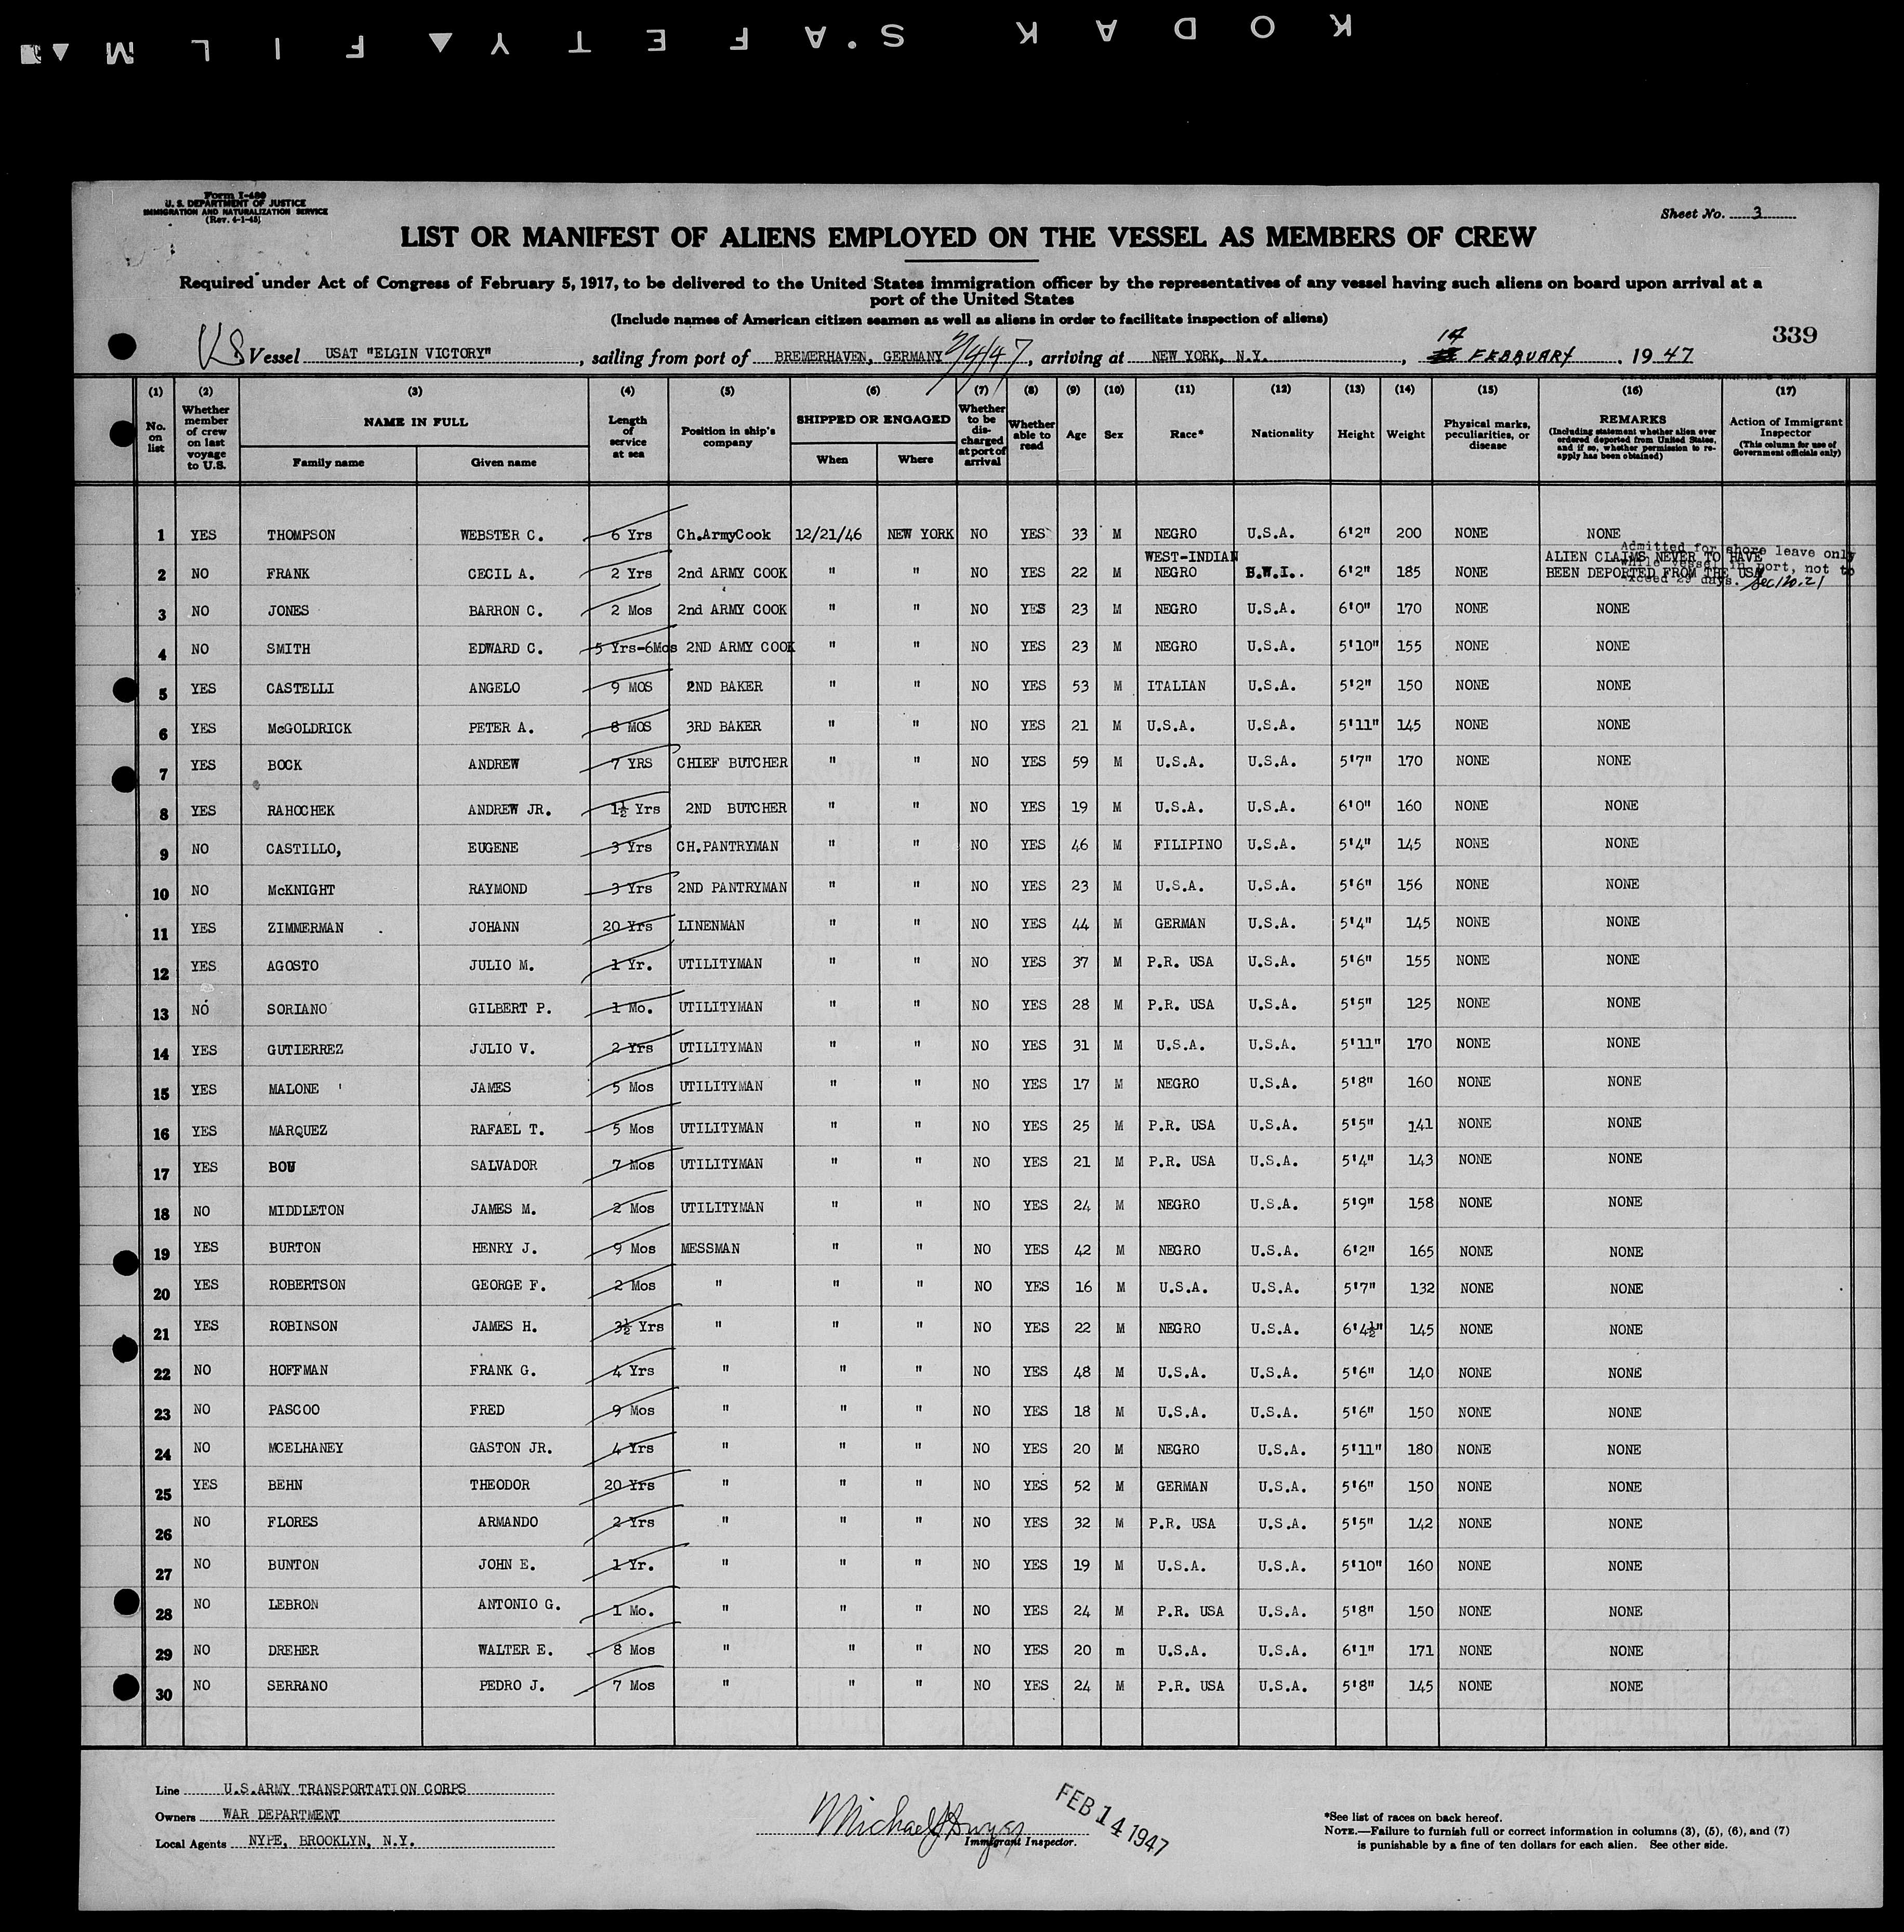 KODAK S.AFETY FILM
Form I-489
U. S. DEPARTMENT OF JUSTICE
IMMIGRATION AND NATURALIZATION SERVICE
(Rev. 4-1-45)
Sheet No. 3
LIST OR MANIFEST OF ALIENS EMPLOYED ON THE VESSEL AS MEMBERS OF CREW
Required under Act of Congress of February 5, 1917, to be delivered to the United States immigration officer by the representatives of any vessel having such aliens on board upon arrival at a
port of the United States
(Include names of American citizen seamen as well as aliens in order to facilitate inspection of aliens)
339
US Vessel USAT "ELGIN VICTORY", sailing from port of BREMERHAVEN, GERMANY 2/4/47, arriving at NEW YORK, N.Y., 14 FEBRUARY, 1947
(1) (2) (3) (4) (5) (6) (7) (8) (9) (10) (11) (12) (13) (14) (15) (16) (17)
No. on list | Whether member of crew on last voyage to U.S. | NAME IN FULL | Family name | Given name | Length of service at sea | Position in ship's company | SHIPPED OR ENGAGED | When | Where | Whether to be discharged at port of arrival | Whether able to read | Age | Sex | Race* | Nationality | Height | Weight | Physical marks, peculiarities, or disease | REMARKS (Including statement whether alien ever ordered deported from United States, and if so, whether permission to re-apply has been obtained) | Action of Immigrant Inspector (This column for use of Government officials only)
1 YES THOMPSON WEBSTER C. 6 Yrs Ch.ArmyCook 12/21/46 NEW YORK NO YES 33 M NEGRO U.S.A. 6'2" 200 NONE NONE
2 NO FRANK CECIL A. 2 Yrs 2nd ARMY COOK " " NO YES 22 M WEST-INDIAN NEGRO B.W.I. 6'2" 185 NONE ALIEN CLAIMS NEVER TO HAVE BEEN DEPORTED FROM THE USA
Admitted for shore leave only
while vessel in port, not to
exceed 29 days. Sec 120.21
3 NO JONES BARRON C. 2 Mos 2nd ARMY COOK " " NO YES 23 M NEGRO U.S.A. 6'0" 170 NONE NONE
4 NO SMITH EDWARD C. 5 Yrs-6Mos 2ND ARMY COOK " " NO YES 23 M NEGRO U.S.A. 5'10" 155 NONE NONE
5 YES CASTELLI ANGELO 9 MOS 2ND BAKER " " NO YES 53 M ITALIAN U.S.A. 5'2" 150 NONE NONE
6 YES McGOLDRICK PETER A. 8 MOS 3RD BAKER " " NO YES 21 M U.S.A. U.S.A. 5'11" 145 NONE NONE
7 YES BOCK ANDREW 7 YRS CHIEF BUTCHER " " NO YES 59 M U.S.A. U.S.A. 5'7" 170 NONE NONE
8 YES RAHOCHEK ANDREW JR. 1½ Yrs 2ND BUTCHER " " NO YES 19 M U.S.A. U.S.A. 6'0" 160 NONE NONE
9 NO CASTILLO, EUGENE 3 Yrs CH.PANTRYMAN " " NO YES 46 M FILIPINO U.S.A. 5'4" 145 NONE NONE
10 NO McKNIGHT RAYMOND 3 Yrs 2ND PANTRYMAN " " NO YES 23 M U.S.A. U.S.A. 5'6" 156 NONE NONE
11 YES ZIMMERMAN JOHANN 20 Yrs LINENMAN " " NO YES 44 M GERMAN U.S.A. 5'4" 145 NONE NONE
12 YES AGOSTO JULIO M. 1 Yr. UTILITYMAN " " NO YES 37 M P.R. USA U.S.A. 5'6" 155 NONE NONE
13 NO SORIANO GILBERT P. 1 Mo. UTILITYMAN " " NO YES 28 M P.R. USA U.S.A. 5'5" 125 NONE NONE
14 YES GUTIERREZ JULIO V. 2 Yrs UTILITYMAN " " NO YES 31 M U.S.A. U.S.A. 5'11" 170 NONE NONE
15 YES MALONE JAMES 5 Mos UTILITYMAN " " NO YES 17 M NEGRO U.S.A. 5'8" 160 NONE NONE
16 YES MARQUEZ RAFAEL T. 5 Mos UTILITYMAN " " NO YES 25 M P.R. USA U.S.A. 5'5" 141 NONE NONE
17 YES BOU SALVADOR 7 Mos UTILITYMAN " " NO YES 21 M P.R. USA U.S.A. 5'4" 143 NONE NONE
18 NO MIDDLETON JAMES M. 2 Mos UTILITYMAN " " NO YES 24 M NEGRO U.S.A. 5'9" 158 NONE NONE
19 YES BURTON HENRY J. 9 Mos MESSMAN " " NO YES 42 M NEGRO U.S.A. 6'2" 165 NONE NONE
20 YES ROBERTSON GEORGE F. 2 Mos " " " NO YES 16 M U.S.A. U.S.A. 5'7" 132 NONE NONE
21 YES ROBINSON JAMES H. 3½ Yrs " " " NO YES 22 M NEGRO U.S.A. 6'4½" 145 NONE NONE
22 NO HOFFMAN FRANK G. 4 Yrs " " " NO YES 48 M U.S.A. U.S.A. 5'6" 140 NONE NONE
23 NO PASCOO FRED 9 Mos " " " NO YES 18 M U.S.A. U.S.A. 5'6" 150 NONE NONE
24 NO MCELHANEY GASTON JR. 4 Yrs " " " NO YES 20 M NEGRO U.S.A. 5'11" 180 NONE NONE
25 YES BEHN THEODOR 20 Yrs " " " NO YES 52 M GERMAN U.S.A. 5'6" 150 NONE NONE
26 NO FLORES ARMANDO 2 Yrs " " " NO YES 32 M P.R. USA U.S.A. 5'5" 142 NONE NONE
27 NO BUNTON JOHN E. 1 Yr. " " " NO YES 19 M U.S.A. U.S.A. 5'10" 160 NONE NONE
28 NO LEBRON ANTONIO G. 1 Mo. " " " NO YES 24 M P.R. USA U.S.A. 5'8" 150 NONE NONE
29 NO DREHER WALTER E. 8 Mos " " " NO YES 20 m U.S.A. U.S.A. 6'1" 171 NONE NONE
30 NO SERRANO PEDRO J. 7 Mos " " " NO YES 24 M P.R. USA U.S.A. 5'8" 145 NONE NONE
Line U.S.ARMY TRANSPORTATION CORPS
Owners WAR DEPARTMENT
Local Agents NYPE, BROOKLYN, N.Y.
Michael
Immigrant Inspector.
FEB 14 1947
*See list of races on back hereof.
NOTE.—Failure to furnish full or correct information in columns (3), (5), (6), and (7)
is punishable by a fine of ten dollars for each alien. See other side.